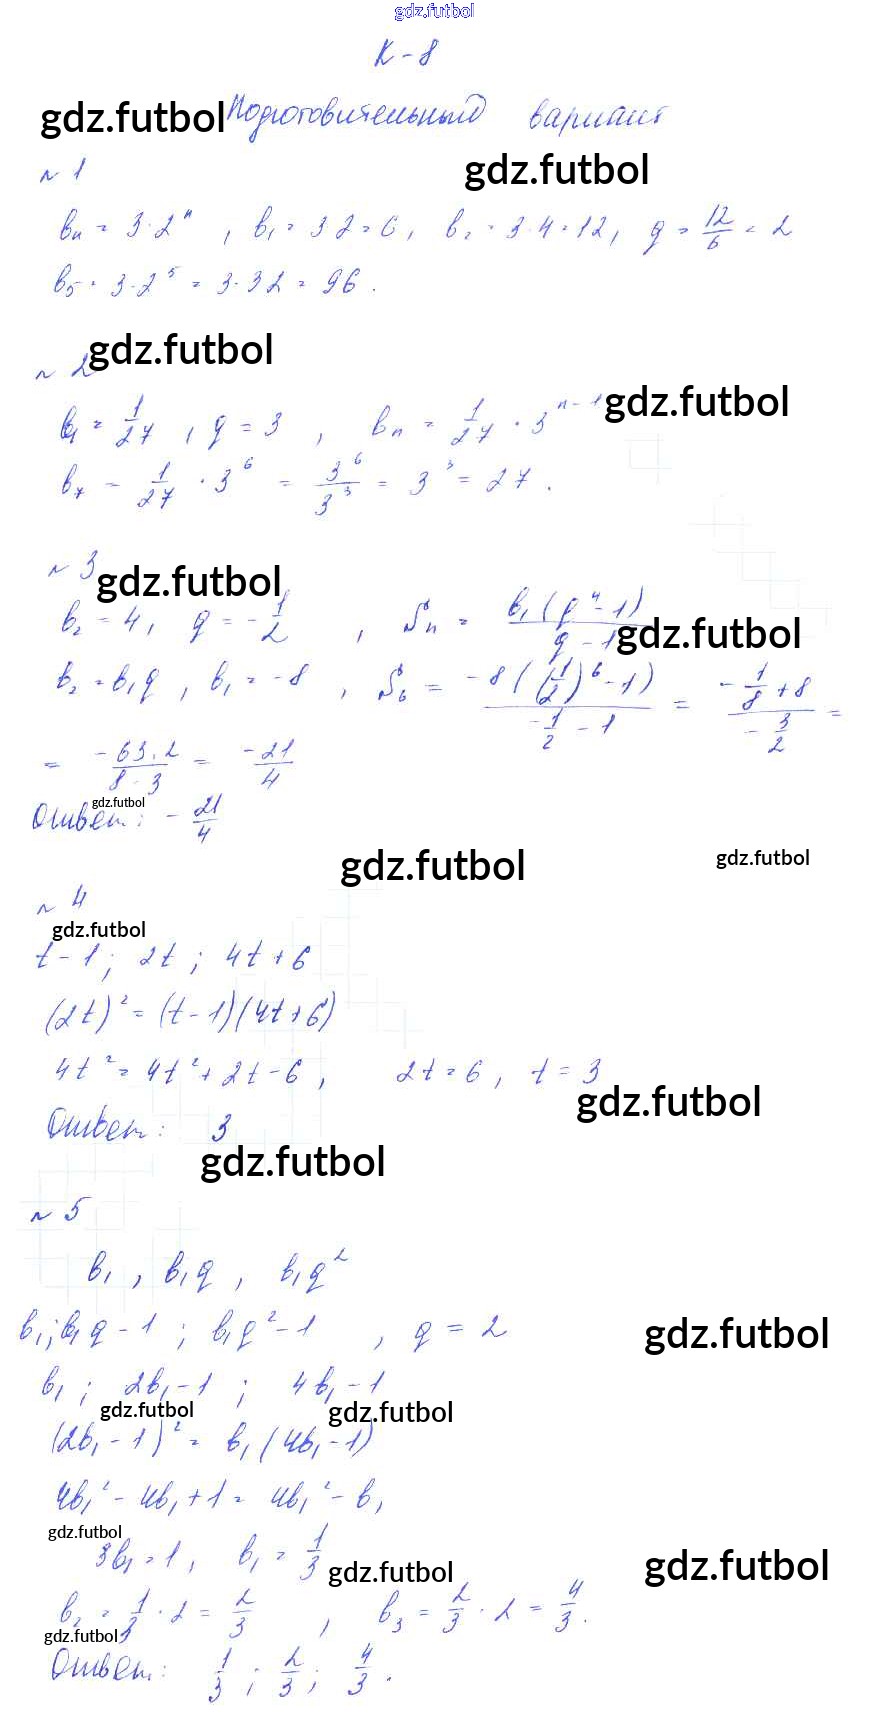 gdz.futbol
К-8
gdz.futbol Подготовительный вариант
gdz.futbol
№ 1
bₙ = 3·2ⁿ, b₁ = 3 2 = 6, b₂ = 3·4 = 12, q = 12/6 = 2
b₅ = 3·2⁵ = 3·32 = 96.
№ 2 gdz.futbol
gdz.futbol
b₁ = 1/27, q = 3, bₙ = 1/27 · 3ⁿ⁻¹
b₇ = 1/27 · 3⁶ = 3⁶/3³ = 3³ = 27.
№ 3 gdz.futbol
b₂ = 4, q = -1/2, Sₙ = b₁(qⁿ-1)/(q-1)
gdz.futbol
b₂ = b₁q, b₁ = -8, S₆ = -8((1/2)⁶-1)/(-1/2-1) = (-1/8+8)/(-3/2) =
= -63·2/(8·3) = -21/4
gdz.futbol
Ответ: -21/4
gdz.futbol
gdz.futbol
№ 4
gdz.futbol
t-1; 2t; 4t+6
(2t)² = (t-1)(4t+6)
4t² = 4t²+2t-6, 2t = 6, t = 3
gdz.futbol
Ответ: 3
gdz.futbol
№ 5
b₁, b₁q, b₁q²
b₁; b₁q-1; b₁q²-1, q = 2
gdz.futbol
b₁; 2b₁-1; 4b₁-1
gdz.futbol gdz.futbol
(2b₁-1)² = b₁(4b₁-1)
4b₁²-4b₁+1 = 4b₁²-b₁
gdz.futbol
3b₁ = 1, b₁ = 1/3
gdz.futbol gdz.futbol
b₂ = 1/3·2 = 2/3, b₃ = 2/3·2 = 4/3.
gdz.futbol
Ответ: 1/3; 2/3; 4/3.